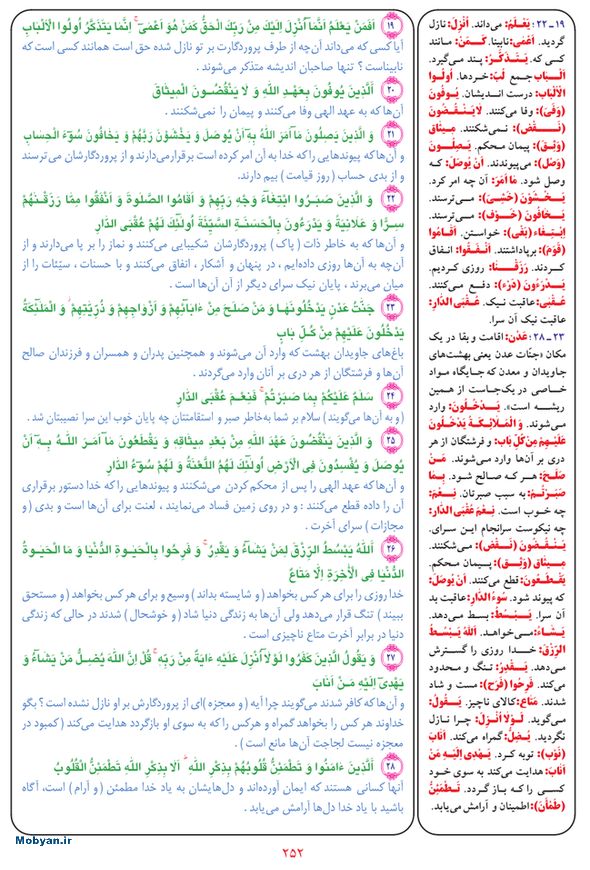 ۱۹ أَفَمَنْ يَعْلَمُ أَنَّمَآ أُنْزِلَ إِلَيْكَ مِنْ رَبِّكَ الْحَقُّ كَمَنْ هُوَ أَعْمَىٰ ۚ إِنَّمَا يَتَذَكَّرُ أُولُوا الْأَلْبَابِ
آیا کسی که می‌داند آن‌چه از طرف پروردگارت بر تو نازل شده حق است همانند کسی است که
نابیناست ؟ تنها صاحبان اندیشه متذکر می‌شوند .
۲۰ اَلَّذِينَ يُوفُونَ بِعَهْدِ اللَّهِ وَ لَا يَنْقُضُونَ الْمِيثَاقَ
آن‌ها که به عهد الهی وفا می‌کنند و پیمان را نمی‌شکنند .
۲۱ وَ الَّذِينَ يَصِلُونَ مَآ أَمَرَ اللَّهُ بِهٓ أَنْ يُوصَلَ وَ يَخْشَوْنَ رَبَّهُمْ وَ يَخَافُونَ سُوٓءَ الْحِسَابِ
و آن‌ها که پیوندهایی را که خدا به آن امر کرده است برقرار می‌دارند و از پروردگارشان می ترسند
و از بدی حساب ( روز قیامت ) بیم دارند.
۲۲ وَ الَّذِينَ صَبَرُوا ابْتِغَآءَ وَجْهِ رَبِّهِمْ وَ أَقَامُوا الصَّلَوةَ وَ أَنْفَقُوا مِمَّا رَزَقْنَهُمْ
سِرًّا وَ عَلَانِيَةً وَ يَدْرَءُونَ بِالْحَسَنَةِ السَّيِّئَةَ أُولَٰئِكَ لَهُمْ عُقْبَى الدَّارِ
و آن‌ها که به خاطر ذات ( پاک ) پروردگارشان شکیبایی می‌کنند و نماز را بر پا می‌دارند و از
آن‌چه به آن‌ها روزی داده‌ایم ، در پنهان و آشکار ، انفاق می‌کنند و با حسنات ، سیّئات را از
میان می‌برند ، پایان نیک سرای دیگر از آن آن‌ها است .
۲۳ جَنَّٰتُ عَدْنٍ يَدْخُلُونَهَا وَ مَنْ صَلَحَ مِنْ ءَابَآئِهِمْ وَ أَزْوَاجِهِمْ وَ ذُرِّيَّتِهِمْ ۖ وَ الْمَلَٰٓئِكَةُ
يَدْخُلُونَ عَلَيْهِمْ مِنْ كُلِّ بَابٍ
باغ‌های جاویدان بهشت که وارد آن می‌شوند و همچنین پدران و همسران و فرزندان صالح
آن‌ها و فرشتگان از هر دری بر آنان وارد می‌گردند .
۲۴ سَلَٰمٌ عَلَيْكُمْ بِمَا صَبَرْتُمْ ۚ فَنِعْمَ عُقْبَى الدَّارِ
( و به آن‌ها می‌گویند ) سلام بر شما به‌خاطر صبر و استقامتتان چه پایان خوب این سرا نصیبتان شد .
۲۵ وَ الَّذِينَ يَنْقُضُونَ عَهْدَ اللَّهِ مِنْ بَعْدِ مِيثَاقِهٖ وَ يَقْطَعُونَ مَآ أَمَرَ اللَّهُ بِهٓ أَنْ
يُوصَلَ وَ يُفْسِدُونَ فِى الْأَرْضِ أُولَٰئِكَ لَهُمُ اللَّعْنَةُ وَ لَهُمْ سُوٓءُ الدَّارِ
و آن‌ها که عهد الهی را پس از محکم کردن می‌شکنند و پیوندهایی را که خدا دستور برقراری
آن را داده قطع می‌کنند : و در روی زمین فساد می‌نمایند ، لعنت برای آن‌ها است و بدی ( و
مجازات ) سرای آخرت .
۲۶ اَللَّهُ يَبْسُطُ الرِّزْقَ لِمَنْ يَشَآءُ وَ يَقْدِرُ ۚ وَ فَرِحُوا بِالْحَيَوةِ الدُّنْيَا وَ مَا الْحَيَوةُ
الدُّنْيَا فِى الْأٰخِرَةِ إِلَّا مَتَاعٌ
خدا روزی را برای هر کس بخواهد ( و شایسته بداند ) وسیع و برای هر کس بخواهد ( و مستحق
ببیند ) تنگ قرار می‌دهد ولی آن‌ها به زندگی دنیا شاد ( و خوشحال ) شدند در حالی که زندگی
دنیا در برابر آخرت متاع ناچیزی است .
۲۷ وَ يَقُولُ الَّذِينَ كَفَرُوا لَوْلَآ أُنْزِلَ عَلَيْهِ ءَايَةٌ مِنْ رَبِّهٖ ۗ قُلْ إِنَّ اللَّهَ يُضِلُّ مَنْ يَشَآءُ وَ
يَهْدِىٓ إِلَيْهِ مَنْ أَنَابَ
و آن‌ها که کافر شدند می‌گویند چرا آیه ( و معجزه )ای از پروردگارش بر او نازل نشده است ؟ بگو
خداوند هر کس را بخواهد گمراه و هرکس را که به سوی او بازگردد هدایت می‌کند ( کمبود در
معجزه نیست لجاجت آن‌ها مانع است ) .
۲۸ اَلَّذِينَ ءَامَنُوا وَ تَطْمَئِنُّ قُلُوبُهُمْ بِذِكْرِ اللَّهِ ۗ أَلَا بِذِكْرِ اللَّهِ تَطْمَئِنُّ الْقُلُوبُ
آنها کسانی هستند که ایمان آورده‌اند و دل‌هایشان به یاد خدا مطمئن ( و آرام ) است، آگاه
باشید با یاد خدا دل‌ها آرامش می‌یابد .
۱۹ـ۲۲: يَعْلَمُ: می‌داند. أُنْزِلَ: نازل
گردید. أَعْمَى: نابینا. كَمَنْ: مانند
کسی که. يَتَذَكَّرُ: پند می‌گیرد.
أَلْبَابِ جمع لُبّ: خردها. أُولُوا
الْأَلْبَابِ: درست اندیشان. يُوفُونَ
(وَفَىَ): وفا می‌کنند. لَا يَنْقُضُونَ
(نَقَضَ): نمی‌شکنند. مِيثَاق
(وَثِقَ): پیمان محکم. يَصِلُونَ
(وَصَلَ): می‌پیوندند. أَنْ يُوصَلَ: که
وصل شود. مَا أَمَرَ: آن چه امر کرد.
يَخْشَوْنَ (خَشِىَ): می‌ترسند.
يَخَافُونَ (خَوَفَ): می‌ترسند.
اِبْتِغَاء (بَغَى): خواستن. أَقَامُوا
(قَوَمَ): برپاداشتند. أَنْفَقُوا: انفاق
کردند. رَزَقْنَا: روزی کردیم.
يَدْرَءُونَ (دَرَءَ): دفع می‌کنند.
عُقْبَى: عاقبت نیک. عُقْبَى الدَّارِ:
عاقبت نیک آن سرا.
۲۳ـ۲۸: عَدْن: اقامت و بقا در یک
مکان «جنّات عدن یعنی بهشت‌های
جاویدان و معدن که جایگاه مواد
خاصی در یک‌جاست از همین
ریشه است». يَدْخُلُونَ: وارد
می‌شوند. وَ الْمَلَائِكَةُ يَدْخُلُونَ
عَلَيْهِمْ مِنْ كُلِّ بَابٍ: و فرشتگان از هر
دری بر آن‌ها وارد می‌شوند. مَنْ
صَلَحَ: هر که صالح شود. بِمَا
صَبَرْتُمْ: به سبب صبرتان. نِعْمَ:
چه خوب است. نِعْمَ عُقْبَى الدَّارِ:
چه نیکوست سرانجام این سرای.
يَنْقُضُونَ (نَقَضَ): می‌شکنند.
مِيثَاق (وَثِقَ): پیمان محکم.
يَقْطَعُونَ: قطع می‌کنند. أَنْ يُوصَلَ:
که پیوند شود. سُوءُ الدَّارِ: عاقبت بد
آن سرا. يَبْسُطُ: بسط می‌دهد.
يَشَاءُ: می‌خواهد. اَللَّهُ يَبْسُطُ
الرِّزْقَ: خدا روزی را گسترش
می‌دهد. يَقْدِرُ: تنگ و محدود
می‌کند. فَرِحُوا (فَرَحَ): مست و شاد
شدند. مَتَاعٌ: کالای ناچیز. يَقُولُ:
می‌گوید. لَوْلَا أُنْزِلَ: چرا نازل
نگردید. يُضِلُّ: گمراه می‌کند. أَنَابَ
(نَوَبَ): توبه کرد. يَهْدِى إِلَيْهِ مَنْ
أَنَابَ: هدایت می‌کند به سوی خود
کسی را که باز گردد. تَطْمَئِنُّ
(طَمْأَنَ): اطمینان و آرامش می‌یابد.
Mobyan.ir
۲۵۲